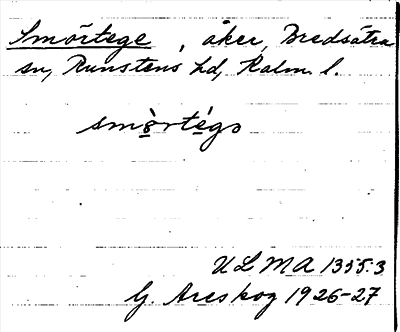 Smörtege, åker, Bredsätra
sn, Runstens hd, Kalm. l.
smö̀rtégo
ULMA 1355:3
G. Areskog 1926-27